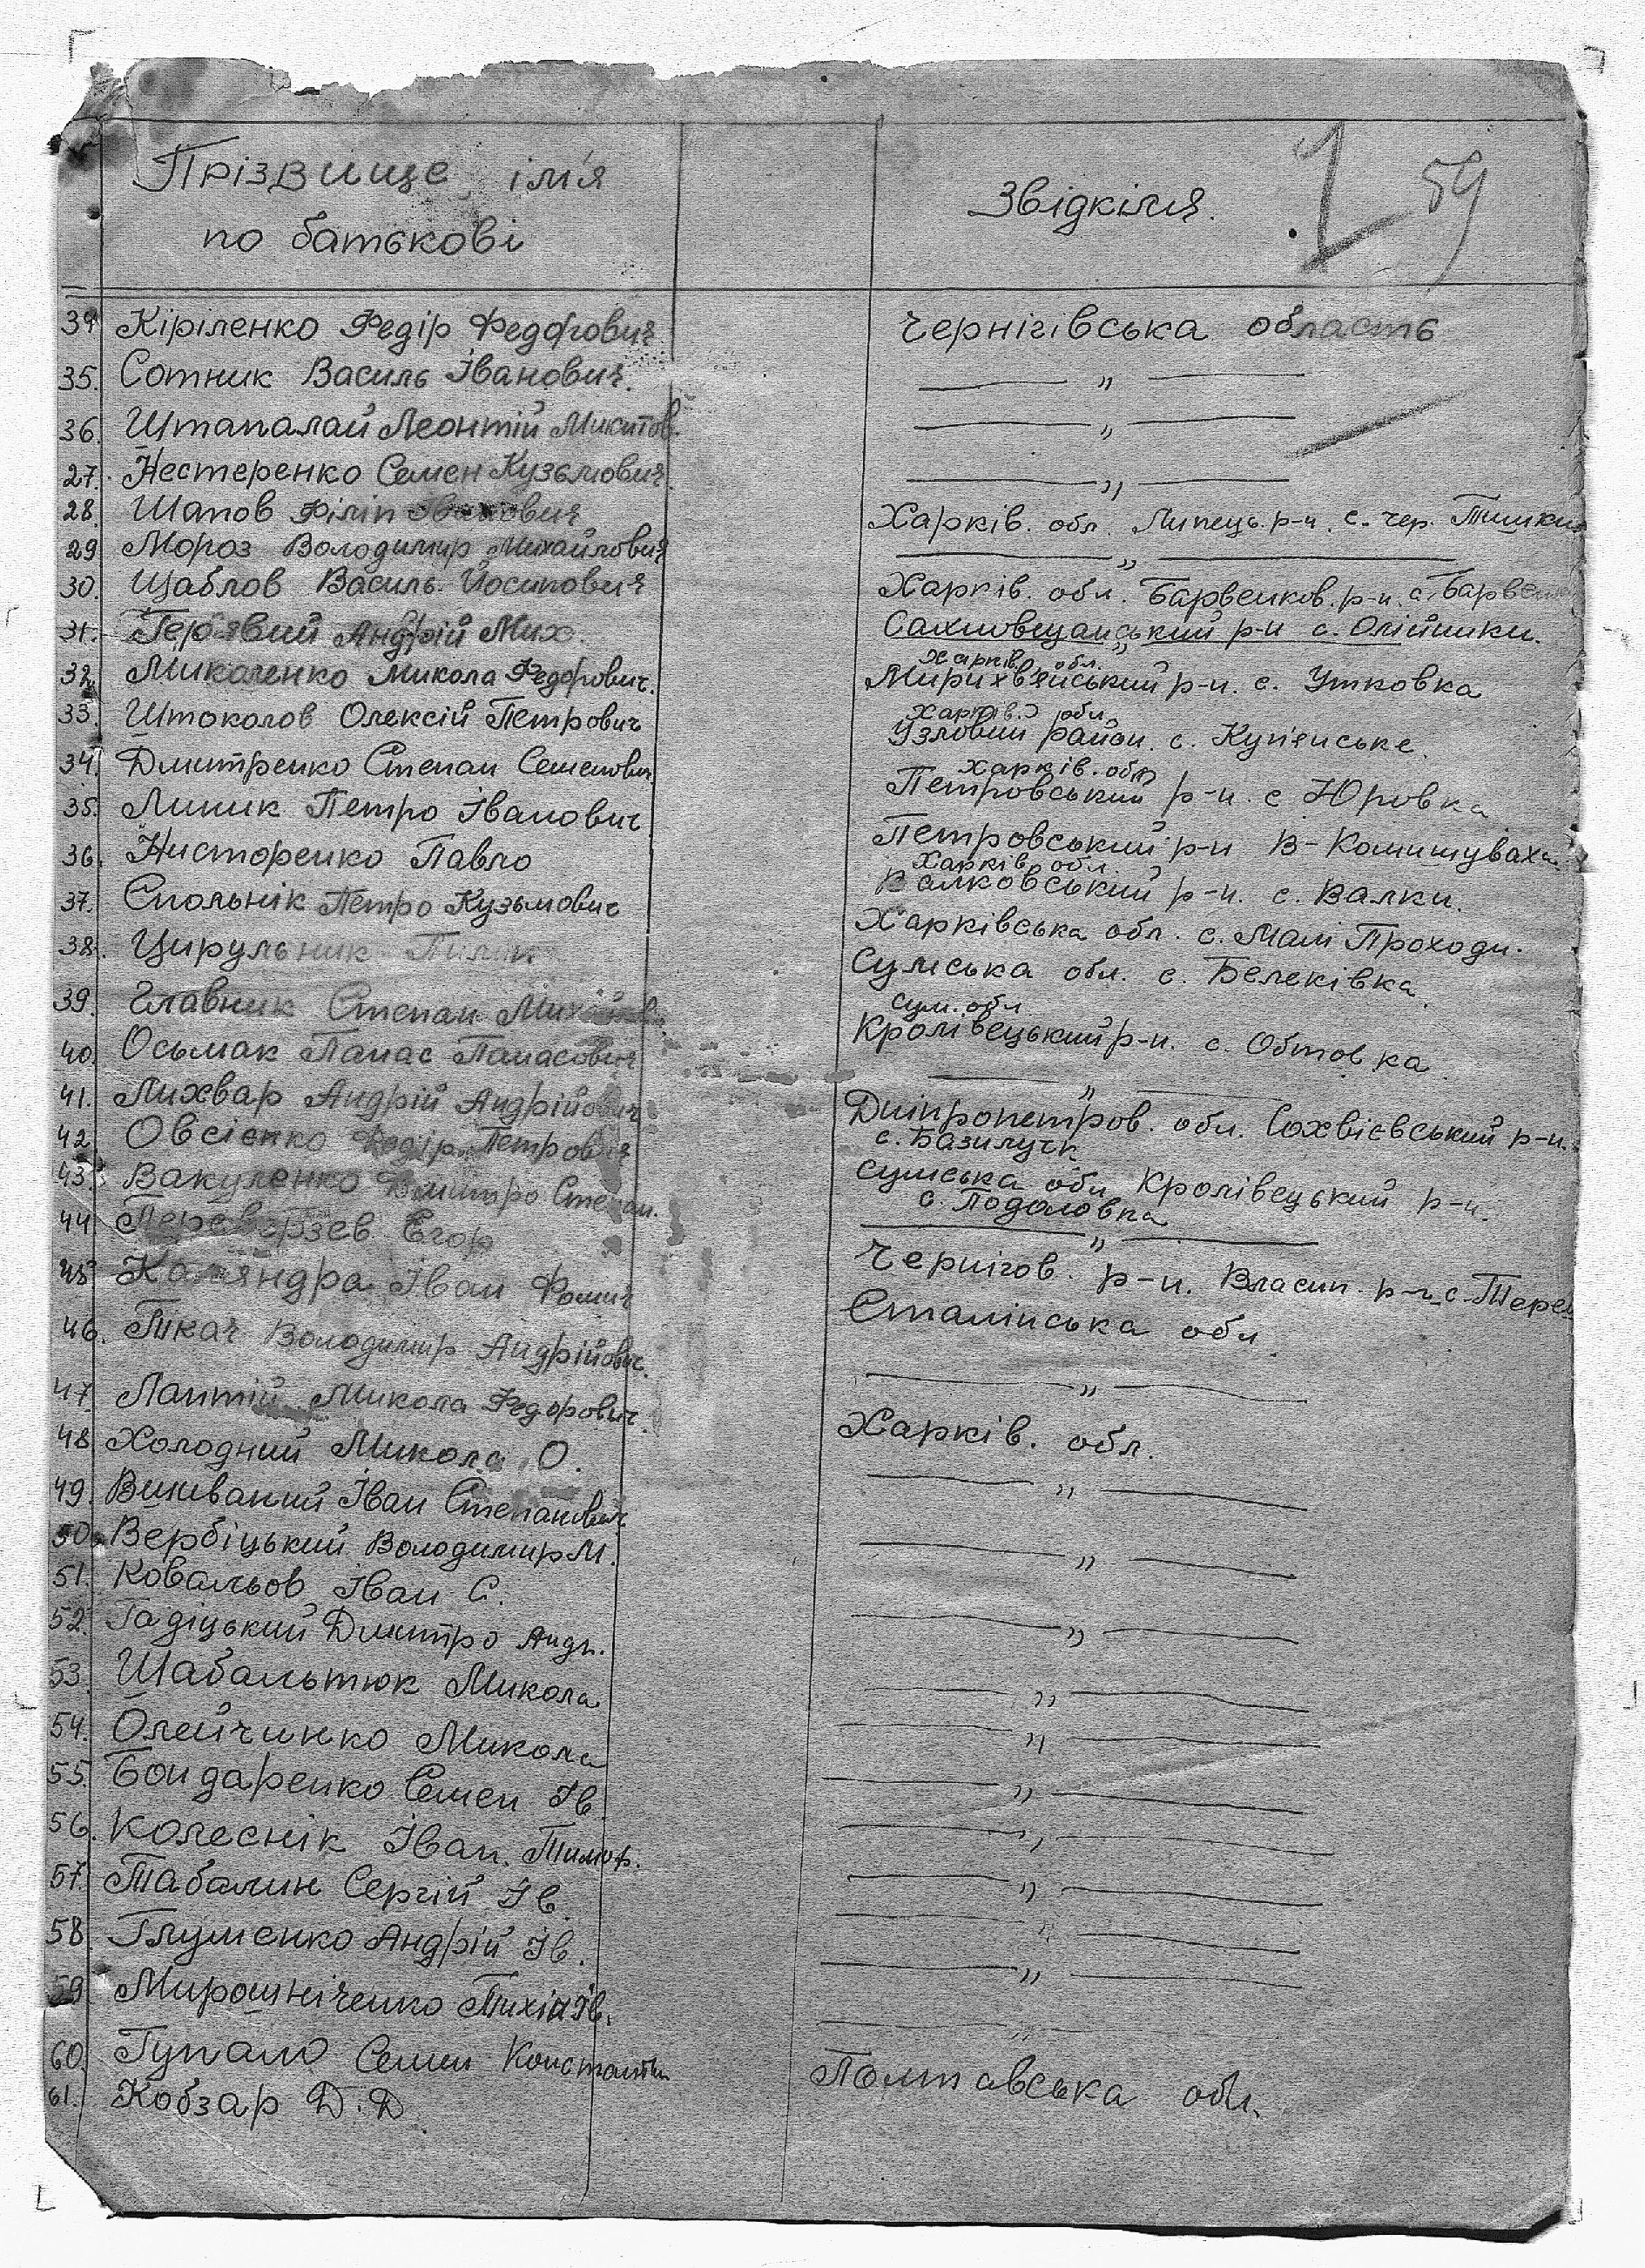 Прізвище, ім'я
по батькові
Звідкіля.
59
39 Кіріленко Федір Федорович Чернігівська область
35. Сотник Василь Іванович. — „ —
36. Штапалай Леонтій Микитов. — „ —
27. Нестеренко Семен Кузьмович. — „ —
28. Шапов Філіп Іванович Харків. обл. Липець. р-н. с. чер. Тишки
29 Мороз Володимир Михайлович — „ —
30. Щаблов Василь Йосипович Харків. обл. Барвенков. р-н. с.
31. Андрій Мих. Сахновщанський р-н с. Олійники.
Харків. обл.
32. Микола Федорович. р-н. с. Утковка
Харків. обл.
33. Штоколов Олексій Петрович Узловий район. с. Куп'янське.
Харків. обл
34. Дмитренко Степан Семенович Петровський р-н. с Юровка
35. Линик Петро Іванович Петровський р-н В-Комишуваха.
Харків. обл.
36. Нисторенко Павло Валковський р-н. с. Валки.
37. Спольнік Петро Кузьмович Харківська обл. с. Малі Проходи.
38. Цирульник Сумська обл. с. Белеківка.
Сум. обл
39. Главник Степан Кролівецький р-н. с. Обтовка
40. Осьмак Панас Панасович — „ —
41. Лихвар Андрій Андрійович Дніпропетров. обл. Сохвієвський р-н.
с. Базилучк
42 Овсієнко Федір Петрович Сумська обл Кролівецький р-н.
с. Подоловка
43. Вакуленко Дмитро Степан. — „ —
44 Переверзев Егор Чернігов. р-н. Власин. р-н с.
45 Іван Фомич Сталінська обл
46. Ткач Володимир Андрійович. — „ —
47. Лаптій Микола Федорович. Харків. обл.
48 Холодний Микола О. — „ —
49. Виниваний Іван Степанович — „ —
50. Вербіцький Володимир М.
51. Ковальов Іван С. — „ —
52. Гадіцький Дмитро Андр. — „ —
53. Шабальтюк Микола — „ —
54. Олейчинко Микола — „ —
55. Бондаренко Семен Ів. — „ —
56. Колеснік Іван. Тимоф. — „ —
57. Табалин Сергій Ів. — „ —
58. Глуменко Андрій Ів. — „ —
59 Мирошніченко Тихін Ів. — „ —
60. Гупало Семен Константин
61. Кобзар Д. Д Полтавська обл.